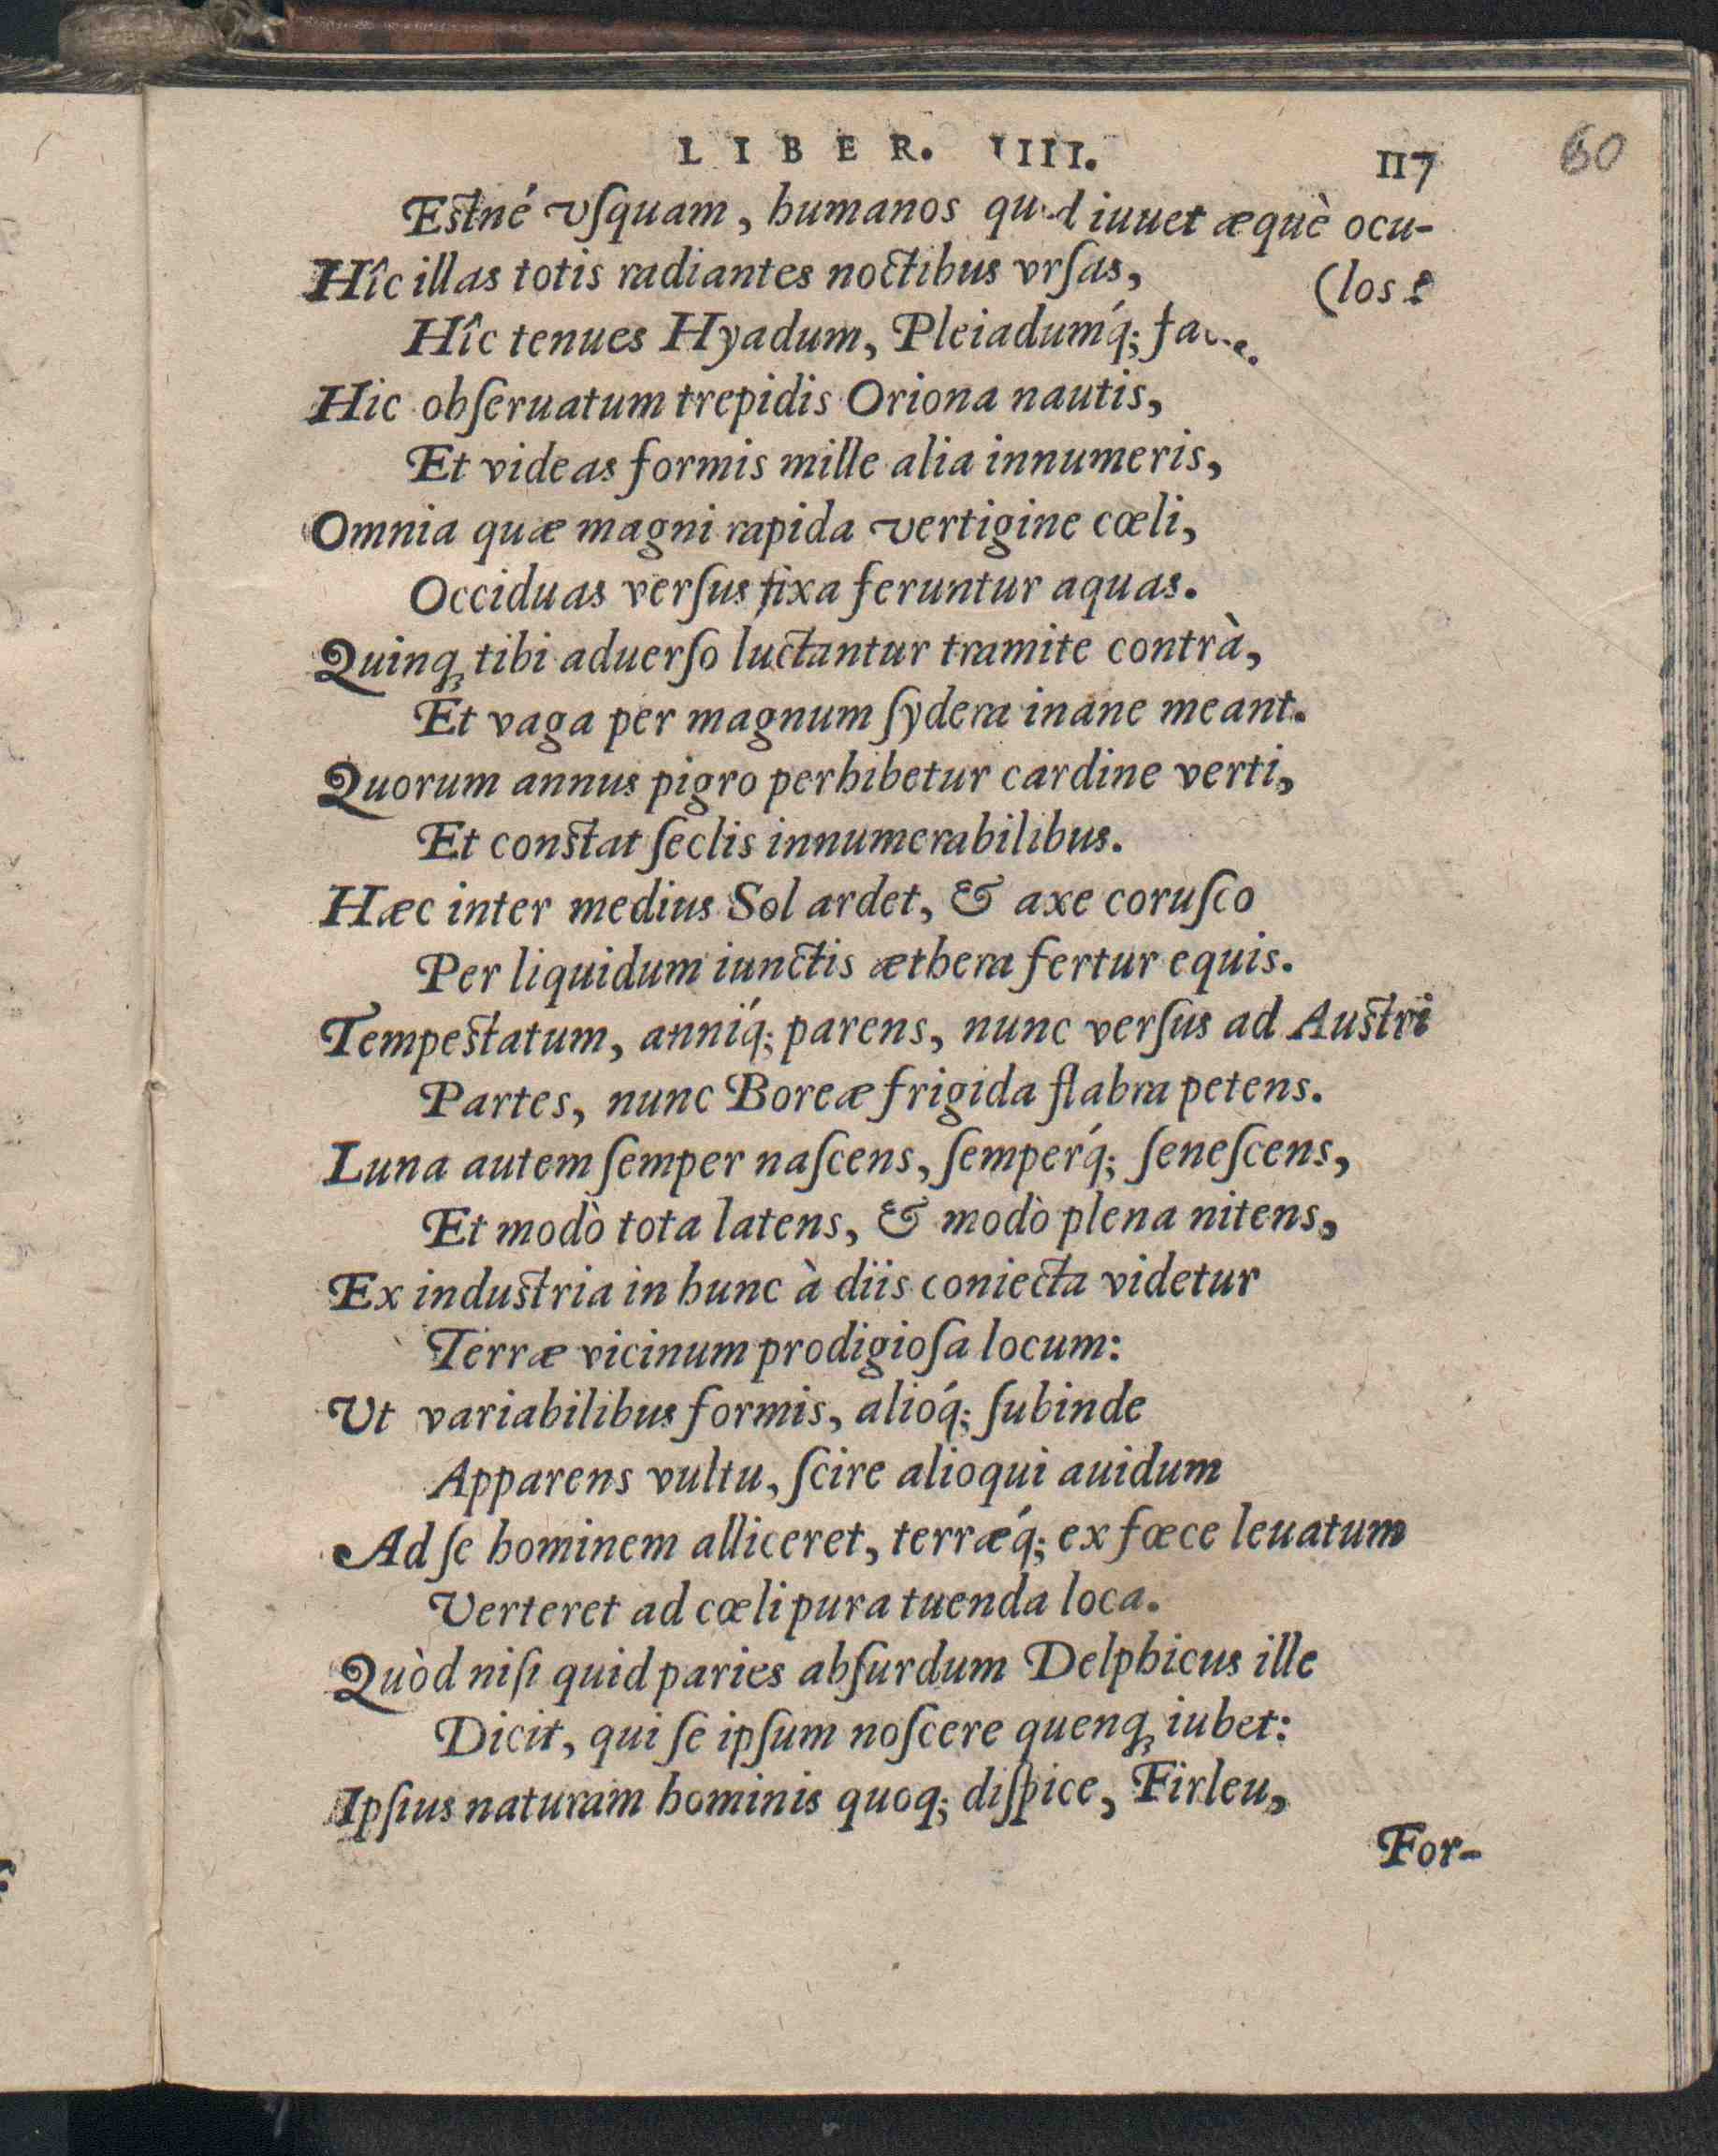 LIBER. IIII. 117
60
Estné vſquam, humanos quod iuuet æquè ocu-
(los?
Hîc illas totis radiantes noctibus vrſas,
Hîc tenues Hyadum, Pleiadumq́;
Hic obſeruatum trepidis Oriona nautis,
Et videas formis mille alia innumeris,
Omnia quæ magni rapida vertigine cœli,
Occiduas verſus fixa feruntur aquas.
Quinq; tibi aduerſo luctantur tramite contrà,
Et vaga per magnum ſydera inane meant.
Quorum annus pigro perhibetur cardine verti,
Et constat ſeclis innumerabilibus.
Hæc inter medius Sol ardet, & axe coruſco
Per liquidum iunctis æthera fertur equis.
Tempestatum, anniq́; parens, nunc verſus ad Austri
Partes, nunc Boreæ frigida flabra petens.
Luna autem ſemper naſcens, ſemperq́; ſeneſcens,
Et modò tota latens, & modò plena nitens,
Ex industria in hunc à diis coniecta videtur
Terræ vicinum prodigioſa locum:
Ut variabilibus formis, alioq́; ſubinde
Apparens vultu, ſcire alioqui auidum
Ad ſe hominem alliceret, terræq́; ex fœce leuatum
Verteret ad cœli pura tuenda loca.
Quòd niſi quid paries abſurdum Delphicus ille
Dicit, qui ſe ipſum noſcere quenq; iubet:
Ipſius naturam hominis quoq; diſpice, Firleu,
For-